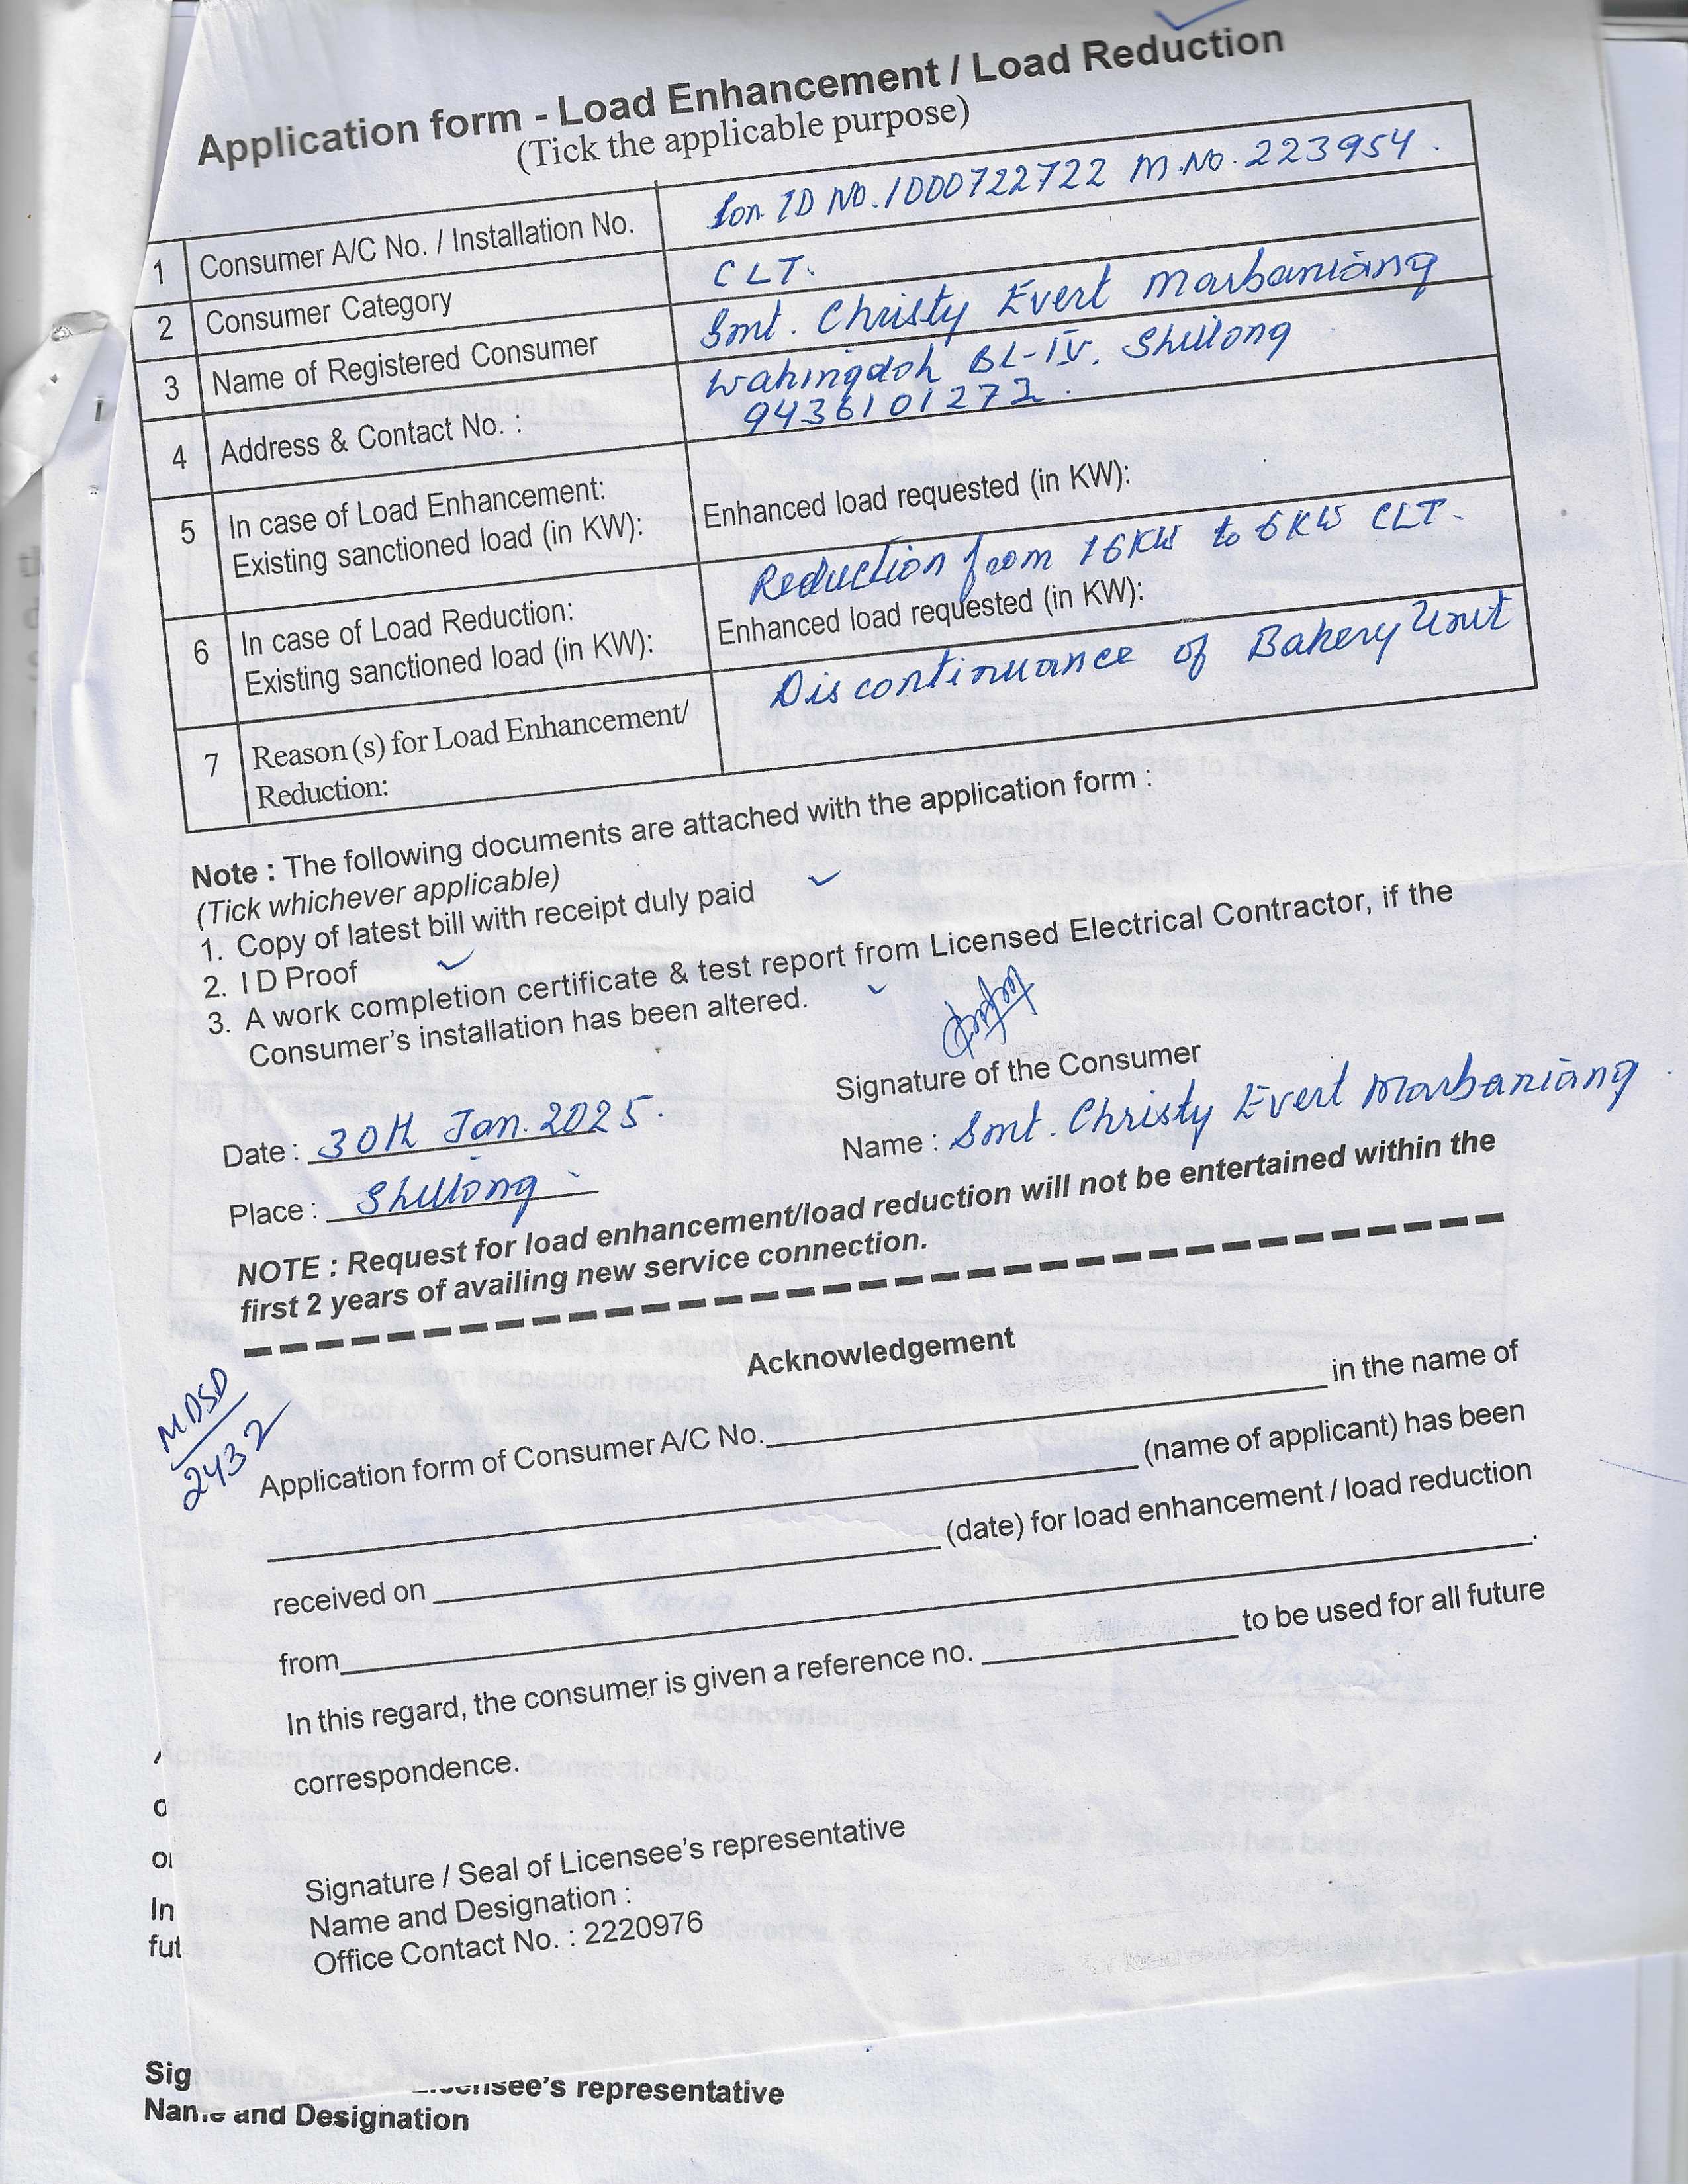 Application form - Load Enhancement / Load Reduction
(Tick the applicable purpose)
1 Consumer A/C No. / Installation No. Con ID NO. 1000722722 M.NO. 223954.
2 Consumer Category CLT.
3 Name of Registered Consumer Smt. Christy Evert Marbaniang
4 Address & Contact No. : Wahingdoh BL-IV, Shillong
9436101272.
5 In case of Load Enhancement:
Existing sanctioned load (in KW): Enhanced load requested (in KW):
6 In case of Load Reduction: Reduction from 16KW to 6KW CLT.
Existing sanctioned load (in KW): Enhanced load requested (in KW):
7 Reason (s) for Load Enhancement/ Discontinuance of Bakery Unit
Reduction:
Note : The following documents are attached with the application form :
(Tick whichever applicable)
1. Copy of latest bill with receipt duly paid
2. I D Proof
3. A work completion certificate & test report from Licensed Electrical Contractor, if the
Consumer's installation has been altered.
Signature of the Consumer
Date : 30th Jan. 2025. Name : Smt. Christy Evert Marbaniang.
Place : Shillong
NOTE : Request for load enhancement/load reduction will not be entertained within the
first 2 years of availing new service connection.
Acknowledgement
MDSD
2432
Application form of Consumer A/C No. in the name of
(name of applicant) has been
received on (date) for load enhancement / load reduction
from .
In this regard, the consumer is given a reference no. to be used for all future
correspondence.
Signature / Seal of Licensee's representative
Name and Designation :
Office Contact No. : 2220976
In
fut
Sig see's representative
Name and Designation